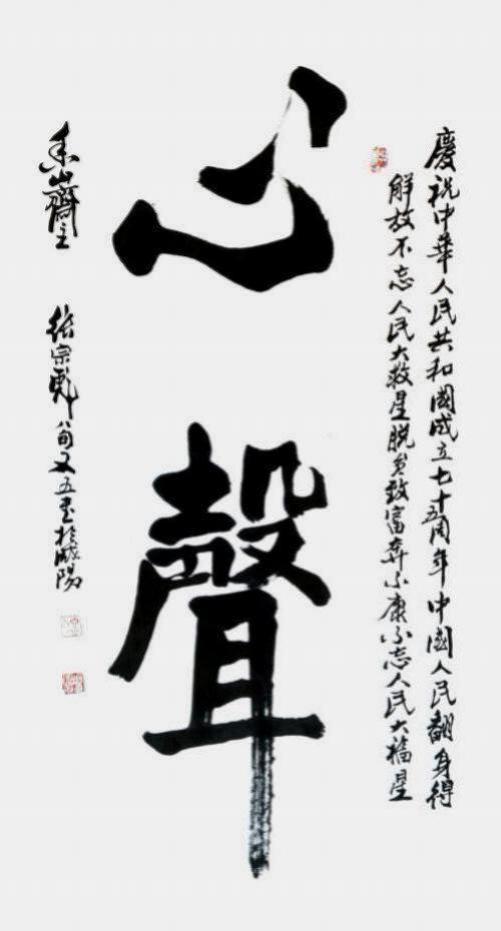 慶祝中華人民共和國成立七十五周年中國人民翻身得
解放不忘人民大救星脫貧致富奔小康不忘人民大福星
心聲
山齋主 張宗彪八旬又五書於咸陽